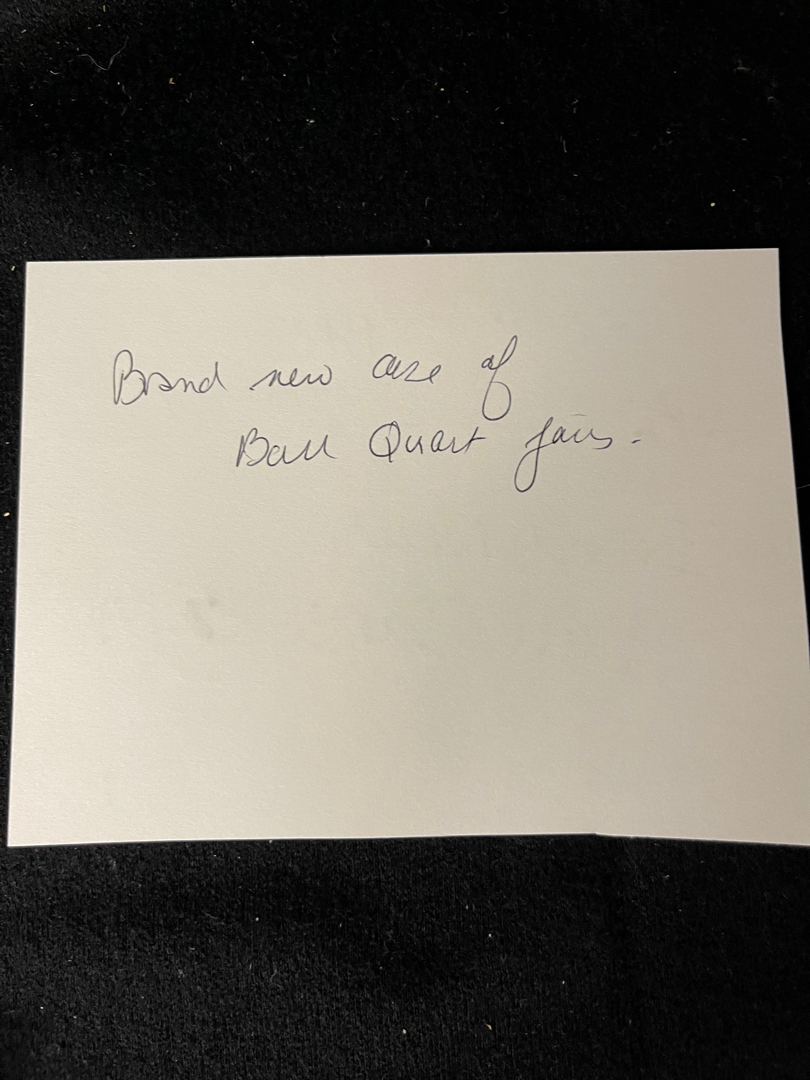 Brand new case of
Ball Quart jars.